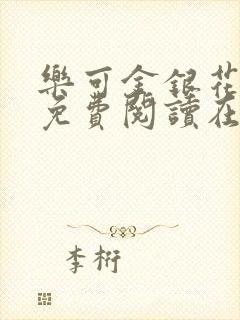 樂可金銀花
免費閱讀在
李桁